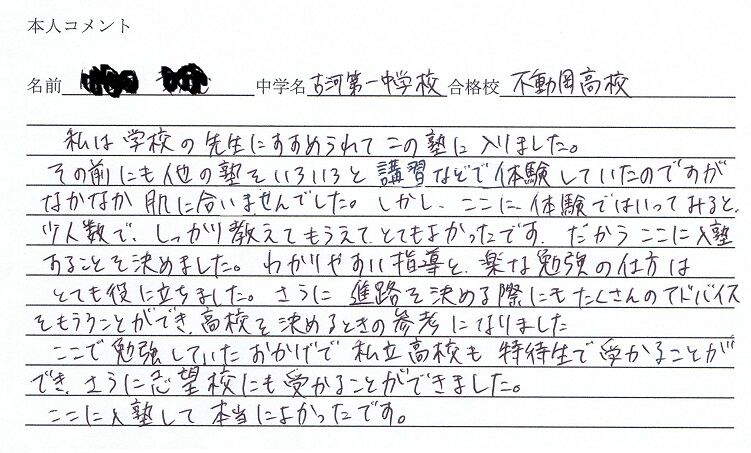 本人コメント
名前 中学名 古河第一中学校 合格校 不動岡高校
私は学校の先生にすすめられてこの塾に入りました。
その前にも他の塾をいろいろと講習などで体験していたのですが
なかなか肌に合いませんでした。しかし、ここに体験ではいってみると、
少人数で、しっかり教えてもらえて、とてもよかったです。だからここに入塾
することを決めました。わかりやすい指導と、楽な勉強の仕方は
とても役に立ちました。さらに進路を決める際にもたくさんのアドバイス
をもらうことができ、高校を決めるときの参考になりました
ここで勉強していたおかげで私立高校も特待生で受かることが
でき、さらに志望校にも受かることができました。
ここに入塾して本当によかったです。